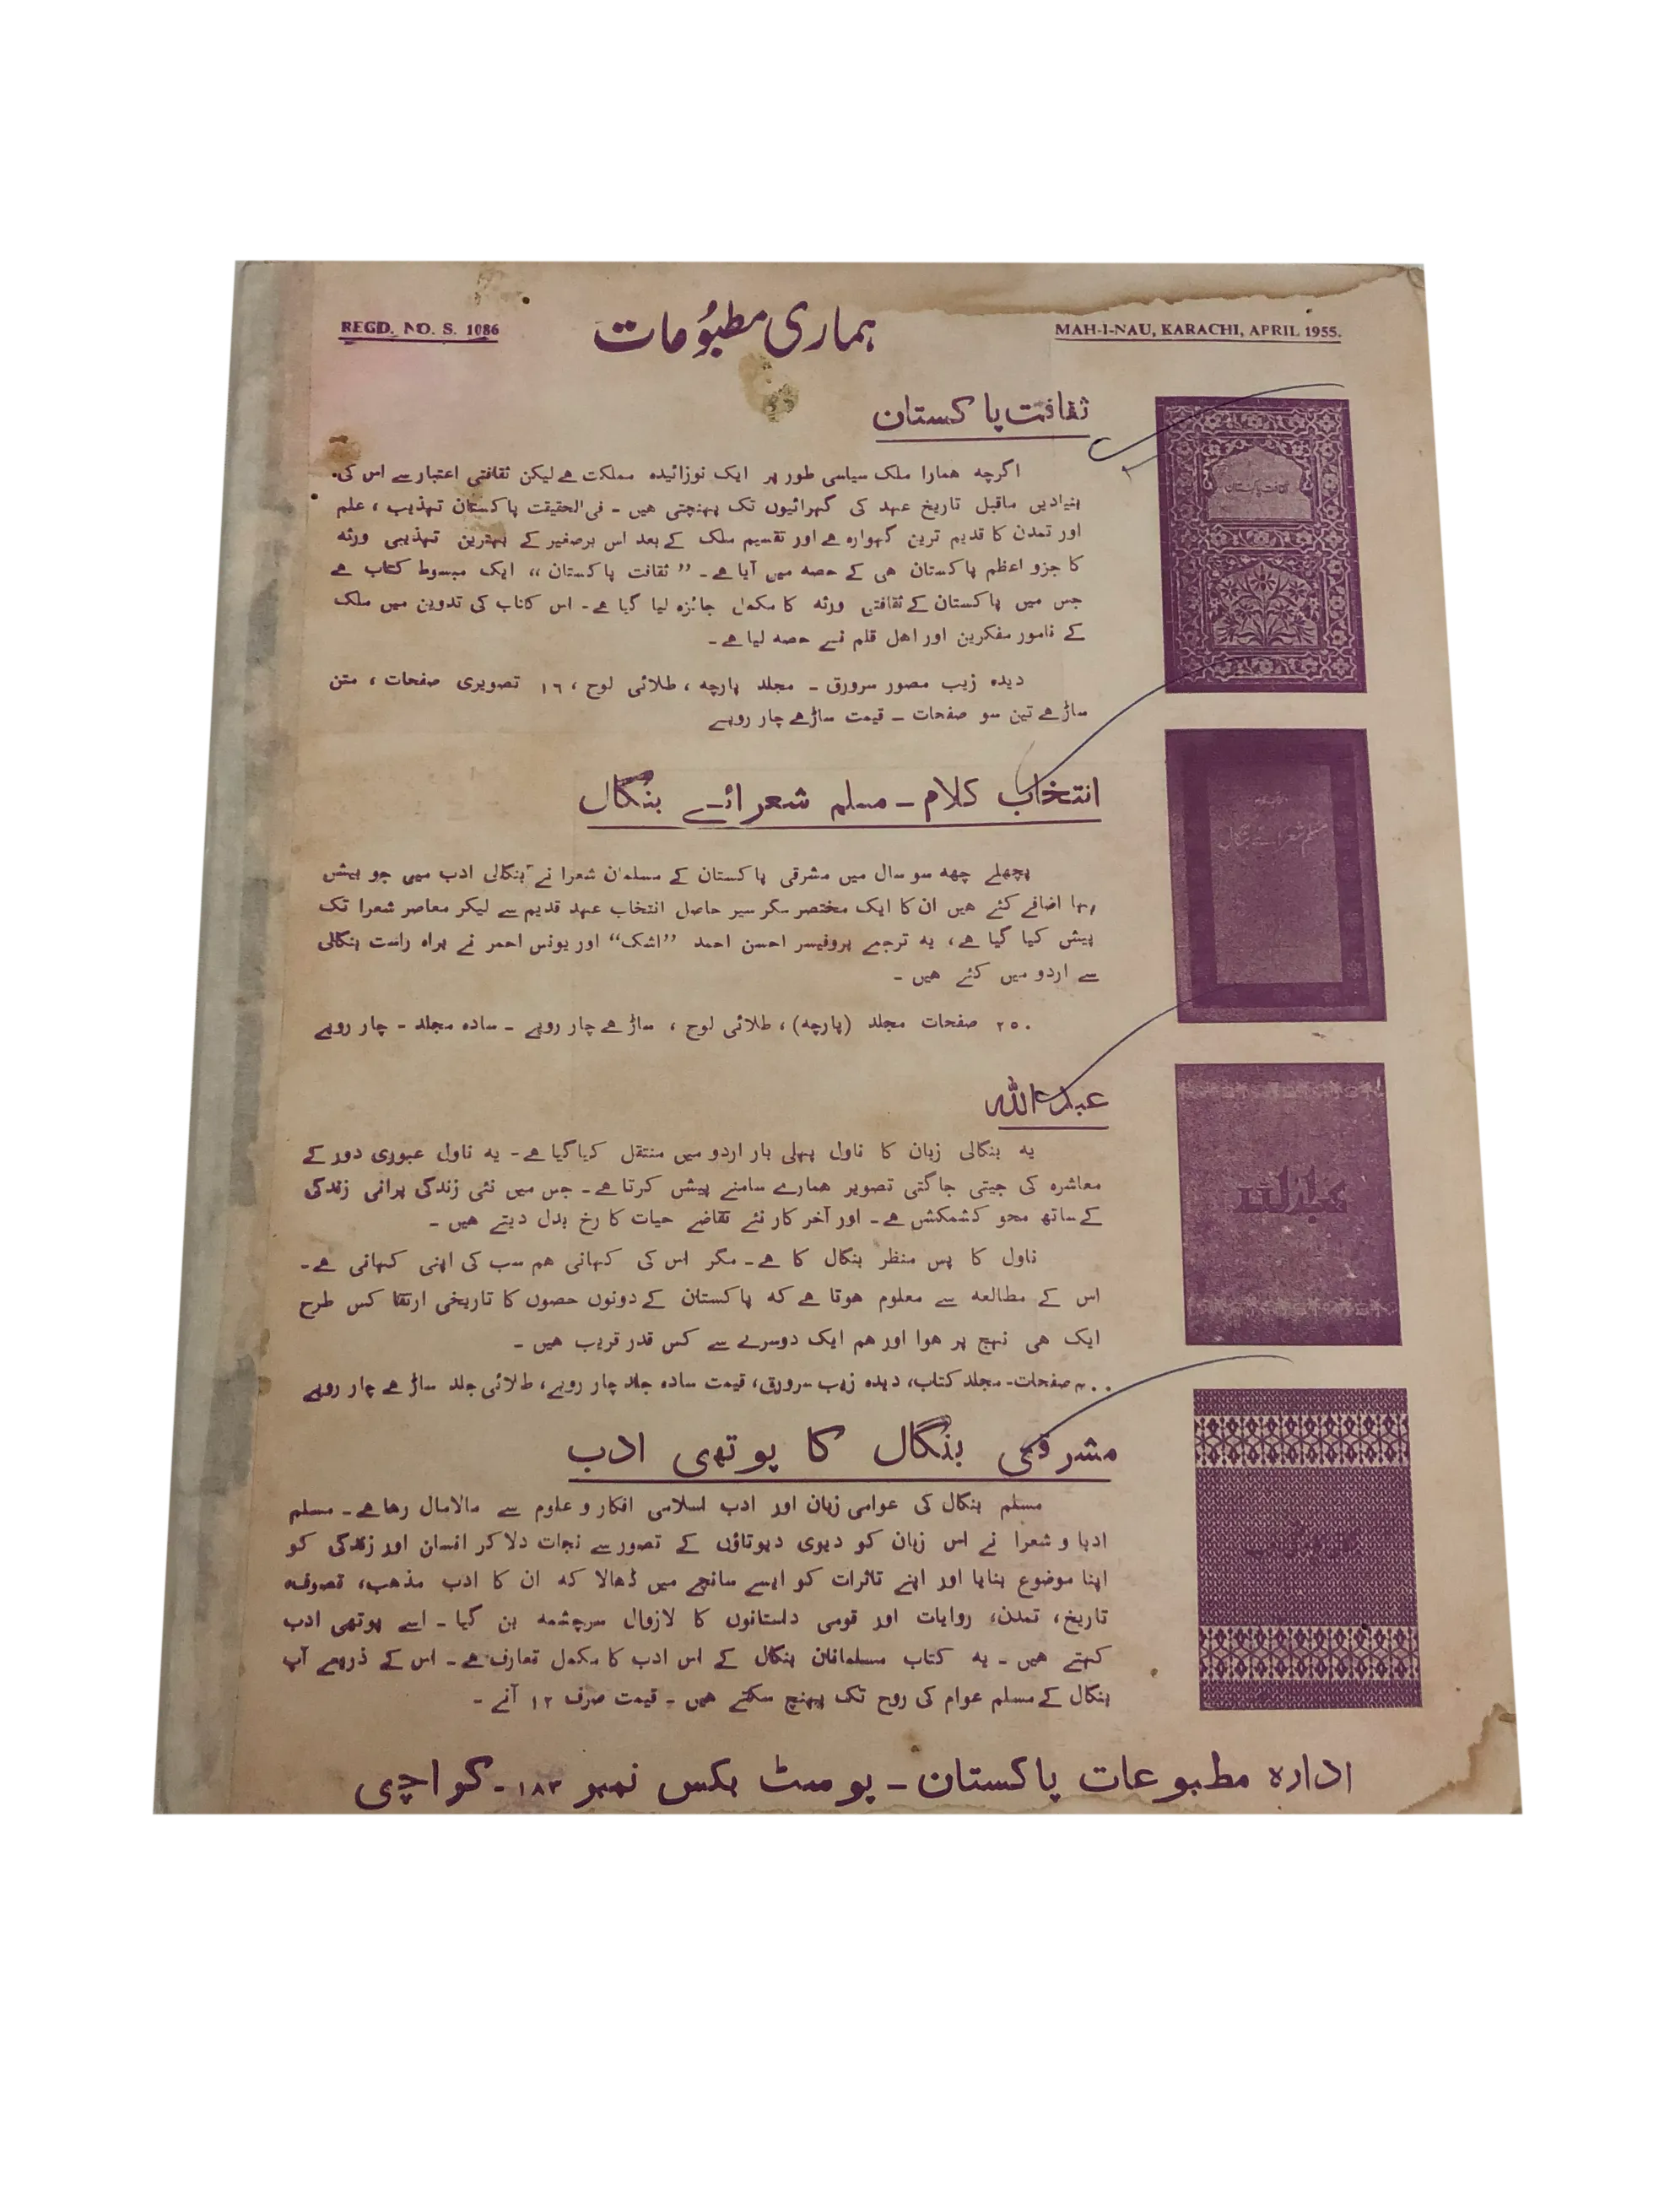 REGD. NO. S. 1086
ہماری مطبوعات
MAH-I-NAU, KARACHI, APRIL 1955.
ثقافت پاکستان
اگرچہ ہمارا ملک سیاسی طور پر ایک نوزائیدہ مملکت ہے لیکن ثقافتی اعتبار سے اس کی
بنیادیں ماقبل تاریخ عہد کی گہرائیوں تک پہنچتی ہیں ۔ فی الحقیقت پاکستان تہذیب ، علم
اور تمدن کا قدیم ترین گہوارہ ہے اور تقسیم ملک کے بعد اس برصغیر کے بہترین تہذیبی ورثہ
کا جزو اعظم پاکستان ہی کے حصہ میں آیا ہے ۔ ”ثقافت پاکستان“ ایک مبسوط کتاب ہے
جس میں پاکستان کے ثقافتی ورثہ کا مکمل جائزہ لیا گیا ہے ۔ اس کتاب کی تدوین میں ملک
کے نامور مفکرین اور اہل قلم نے حصہ لیا ہے ۔
دیدہ زیب مصور سرورق ۔ مجلد پارچہ ، طلائی لوح ، ۱۶ تصویری صفحات ، متن
ساڑھے تین سو صفحات ۔ قیمت ساڑھے چار روپے
ثقافت پاکستان
انتخاب کلام ۔ مسلم شعرائے بنگال
پچھلے چھہ سو سال میں مشرقی پاکستان کے مسلمان شعرا نے بنگالی ادب میں جو بیش
بہا اضافے کئے ہیں ان کا ایک مختصر مگر سیر حاصل انتخاب عہد قدیم سے لیکر معاصر شعرا تک
پیش کیا گیا ہے ، یہ ترجمے پروفیسر احسن احمد ”اشک“ اور یونس احمر نے براہ راست بنگالی
سے اردو میں کئے ہیں ۔
۲۵۰ صفحات مجلد (پارچہ) ، طلائی لوح ، ساڑھے چار روپے ۔ سادہ مجلد ۔ چار روپے
مسلم شعرائے بنگال
عبداللہ
یہ بنگالی زبان کا ناول پہلی بار اردو میں منتقل کیا گیا ہے ۔ یہ ناول عبوری دور کے
معاشرہ کی جیتی جاگتی تصویر ہمارے سامنے پیش کرتا ہے ۔ جس میں نئی زندگی پرانی زندگی
کے ساتھ محو کشمکش ہے ۔ اور آخر کار نئے تقاضے حیات کا رخ بدل دیتے ہیں ۔
ناول کا پس منظر بنگال کا ہے ۔ مگر اس کی کہانی ہم سب کی اپنی کہانی ہے ۔
اس کے مطالعہ سے معلوم ہوتا ہے کہ پاکستان کے دونوں حصوں کا تاریخی ارتقا کس طرح
ایک ہی نہج پر ہوا اور ہم ایک دوسرے سے کس قدر قریب ہیں ۔
صفحات ۔ مجلد کتاب ، دیدہ زیب سرورق ، قیمت سادہ جلد چار روپے ، طلائی جلد ساڑھے چار روپے
عبداللہ
مشرقی بنگال کا پوتھی ادب
مسلم بنگال کی عوامی زبان اور ادب اسلامی افکار و علوم سے مالامال رہا ہے ۔ مسلم
ادبا و شعرا نے اس زبان کو دیوی دیوتاؤں کے تصور سے نجات دلا کر انسان اور زندگی کو
اپنا موضوع بنایا اور اپنے تاثرات کو ایسے سانچے میں ڈھالا کہ ان کا ادب مذہب ، تصوف،
تاریخ ، تمدن ، روایات اور قومی داستانوں کا لازوال سرچشمہ بن گیا ۔ اسے پوتھی ادب
کہتے ہیں ۔ یہ کتاب مسلمانان بنگال کے اس ادب کا مکمل تعارف ہے ۔ اس کے ذریعے آپ
بنگال کے مسلم عوام کی روح تک پہنچ سکتے ہیں ۔ قیمت صرف ۱۲ آنے ۔
ادارہ مطبوعات پاکستان ۔ پوسٹ بکس نمبر ۱۸۳ ۔ کراچی